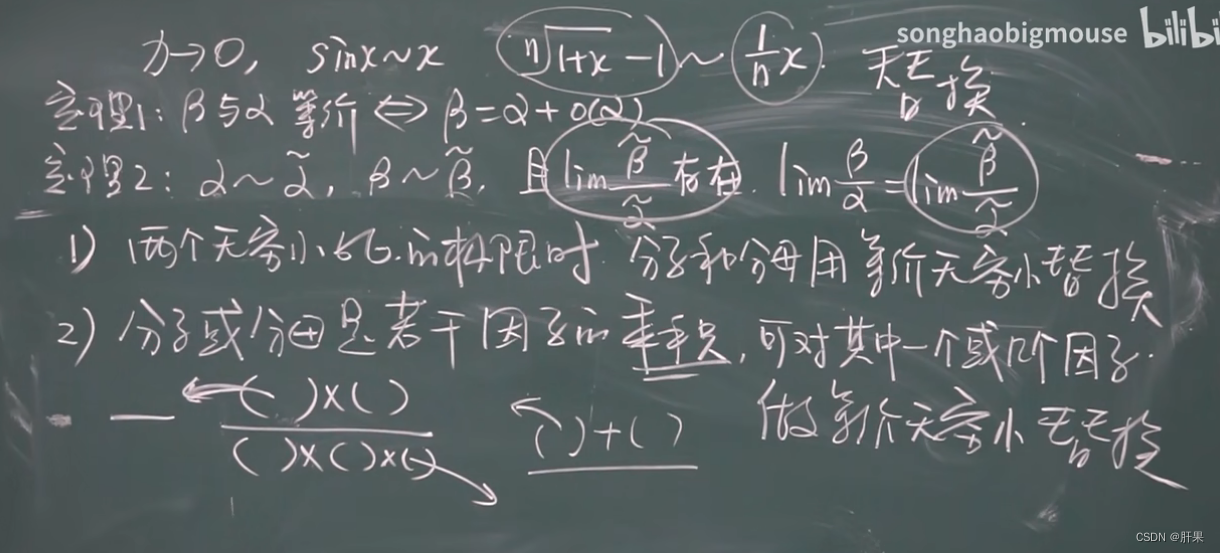 songhaobigmouse bilibi
x→0, sinx~x ⁿ√(1+x) -1 ~ 1/n x. 替换.
定理1: β与α 等价 ⇔ β=α+o(α)
定理2: α~α̃, β~β̃, 且 lim β̃/α̃ 存在. lim β/α = lim β̃/α̃
1) 两个无穷小比的极限时. 分子和分母用等价无穷小替换
2) 分子或分母是若干因子的乘积, 可对其中一个或几个因子.
做等价无穷小替换
( )×( ) / ( )×( )×( ) ( )+( )
CSDN @肝果